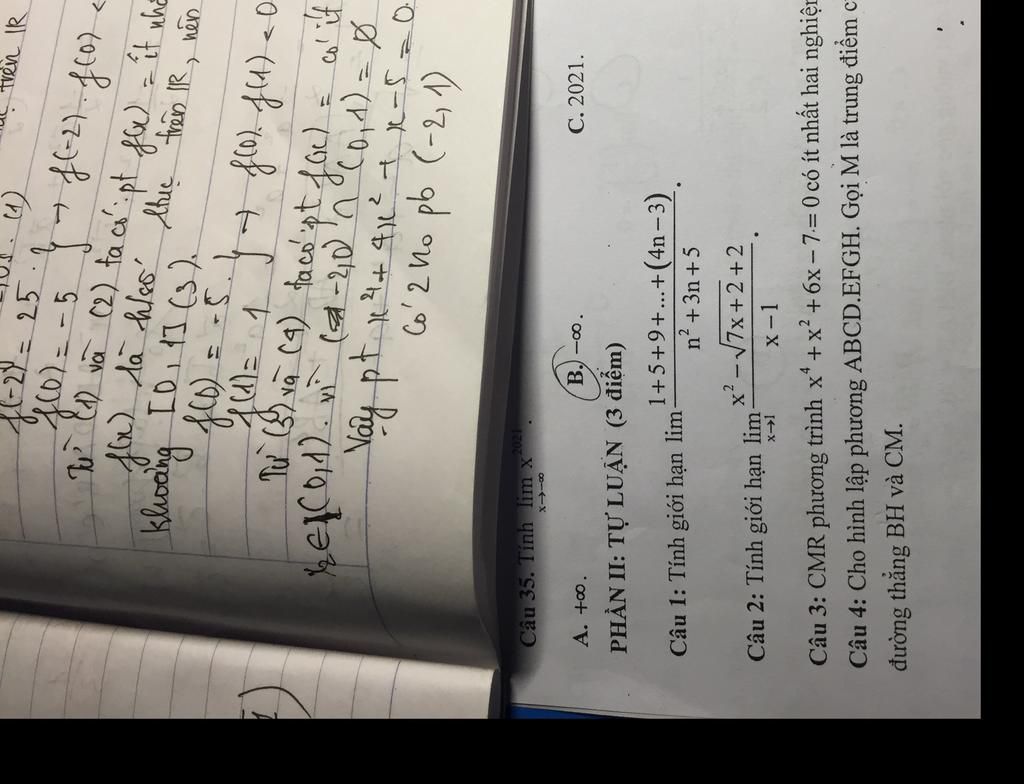 trên IR
f(-2) = 25
f(0) = -5 } → f(-2). f(0) <
Từ (1) và (2) ta có: pt f(x) = ít
f(x) là hàm số liên tục trên IR, nên
khoảng [0, 1] (3).
f(0) = -5.
f(1) = 1 } → f(0). f(1) < 0
Từ (3) và (4) ta có pt f(x) = có ít
∈ (0, 1). vì (-2, 0) ∩ (0, 1) = ∅
Vậy pt x⁴ + 4x² + x - 5 = 0.
có 2 no pb (-2, 1)
Câu 35. Tính lim x→-∞ x²⁰²¹ .
A. +∞. B. -∞. C. 2021.
PHẦN II: TỰ LUẬN (3 điểm)
Câu 1: Tính giới hạn lim (1 + 5 + 9 + ... + (4n - 3)) / (n² + 3n + 5) .
Câu 2: Tính giới hạn lim x→1 (x² - √(7x + 2) + 2) / (x - 1) .
Câu 3: CMR phương trình x⁴ + x² + 6x - 7 = 0 có ít nhất hai nghiệm
Câu 4: Cho hình lập phương ABCD.EFGH. Gọi M là trung điểm
đường thẳng BH và CM.